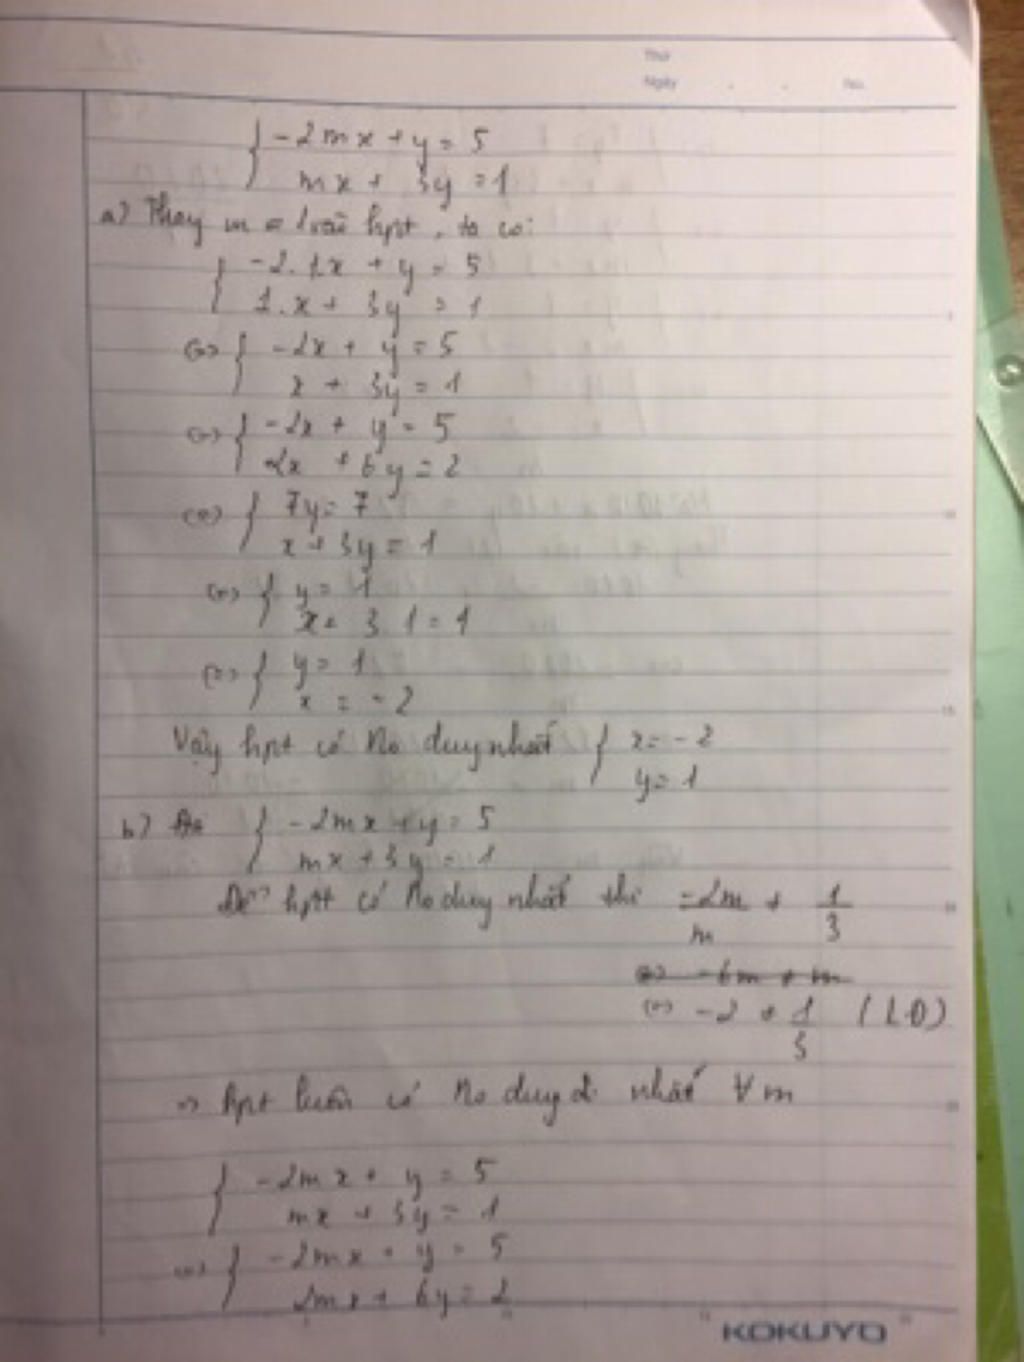 Thứ
Ngày . . No.
{ -2mx + y = 5
mx + 3y = 1
a) Thay m = 1 vào hpt, ta có:
{ -2.1x + y = 5
1.x + 3y = 1
<=> { -2x + y = 5
x + 3y = 1
<=> { -2x + y = 5
2x + 6y = 2
<=> { 7y = 7
x + 3y = 1
<=> { y = 1
x + 3.1 = 1
<=> { y = 1
x = -2
Vậy hpt có no duy nhất { x = -2
y = 1
b) { -2mx + y = 5
mx + 3y = 1
Để hpt có no duy nhất thì -2m/m ≠ 1/3
<=> -6m ≠ m
<=> -2 ≠ 1/3 (LĐ)
=> hpt luôn có no duy nhất ∀m
{ -2mx + y = 5
mx + 3y = 1
<=> { -2mx + y = 5
2mx + 6y = 2
KOKUYO